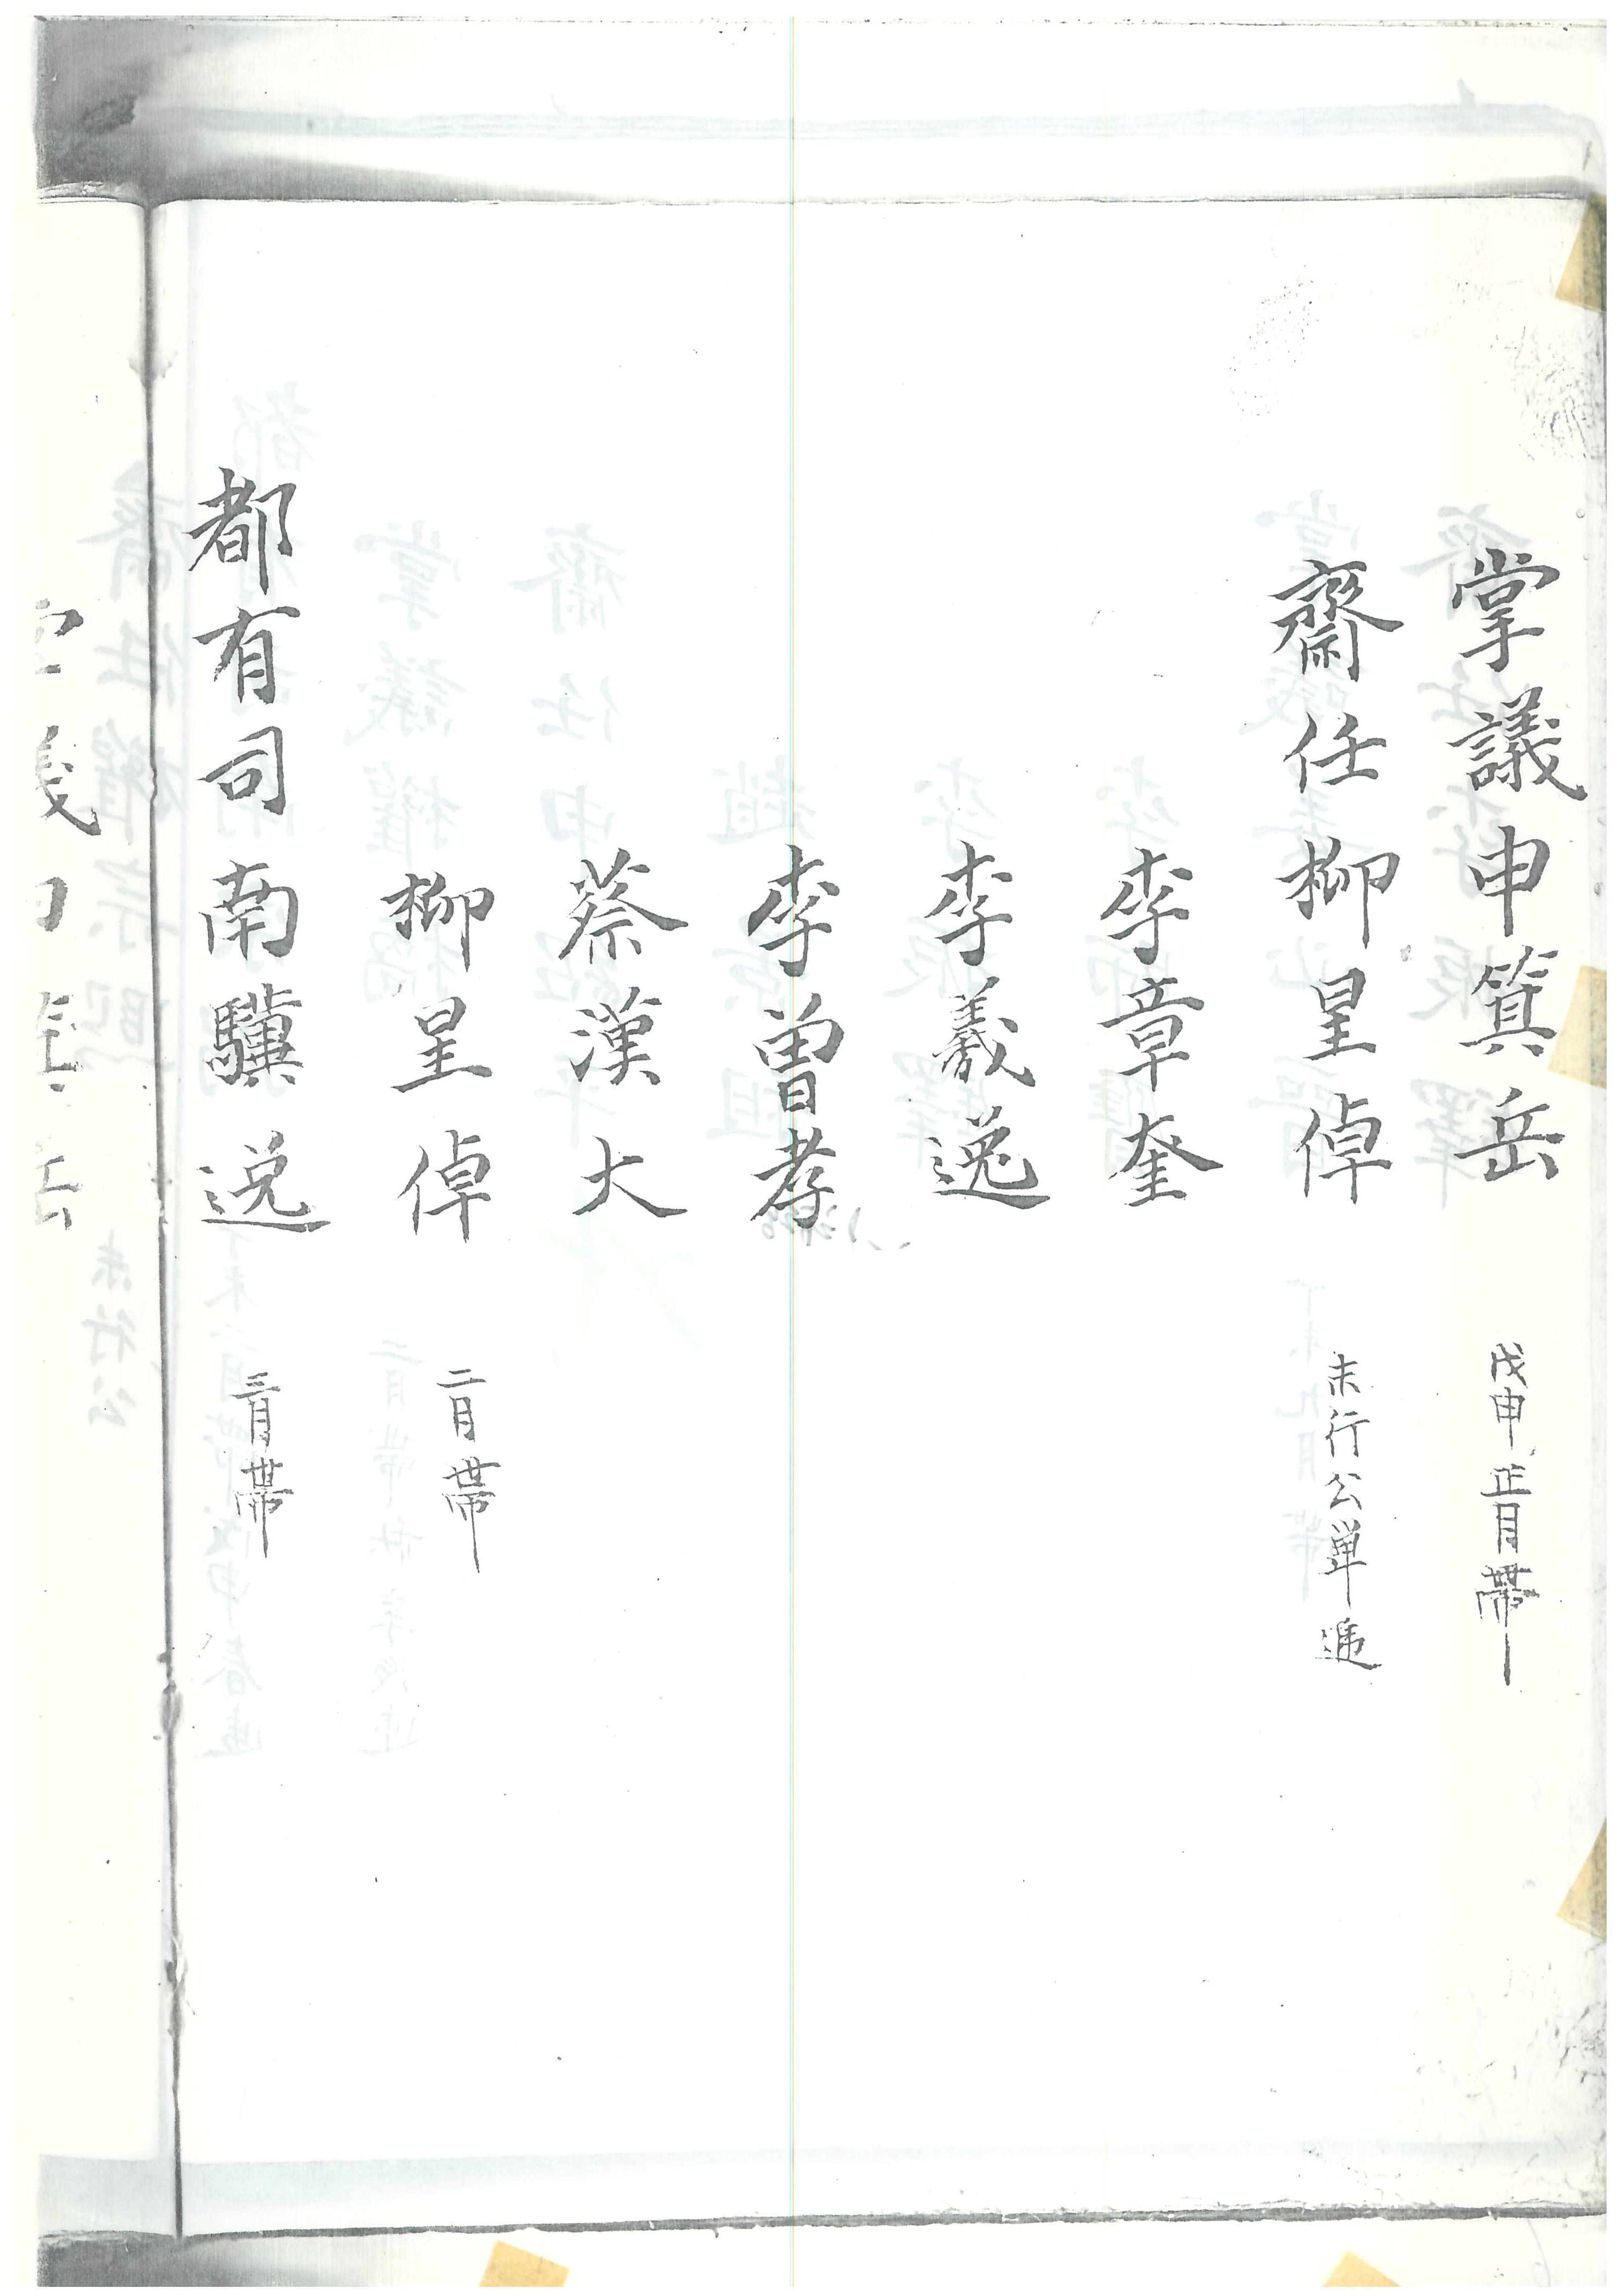 掌議申箕岳 戊申正月帶
齋任柳星倬 未行公單遞
李章奎
李羲逸
李曾孝
蔡漢大
柳星倬 二月帶
都有司南驥逸 三月帶